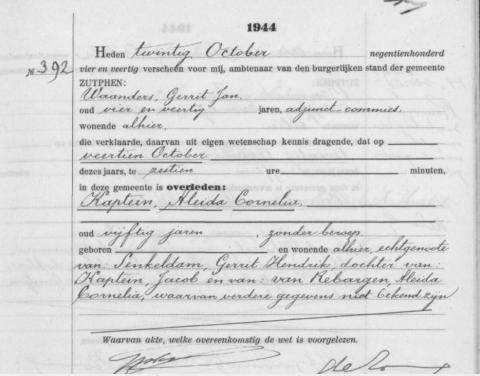 1944
Heden twintig October negentienhonderd
№ 392 vier en veertig verscheen voor mij, ambtenaar van den burgerlijken stand der gemeente
ZUTPHEN:
Waanders, Gerrit Jan.
oud vier en veertig jaren, adjunct-commies.
wonende alhier.
die verklaarde, daarvan uit eigen wetenschap kennis dragende, dat op
veertien October
dezes jaars, te zestien ure minuten,
in deze gemeente is overleden:
Kaptein, Aleida Cornelia.
oud vijftig jaren, zonder beroep.
geboren en wonende alhier, echtgenoote
van: Senkeldam, Gerrit Hendrik, dochter van:
Kaptein, Jacob en van: van Rebargen, Aleida
Cornelia, waarvan verdere gegevens niet bekend zijn
Waarvan akte, welke overeenkomstig de wet is voorgelezen.